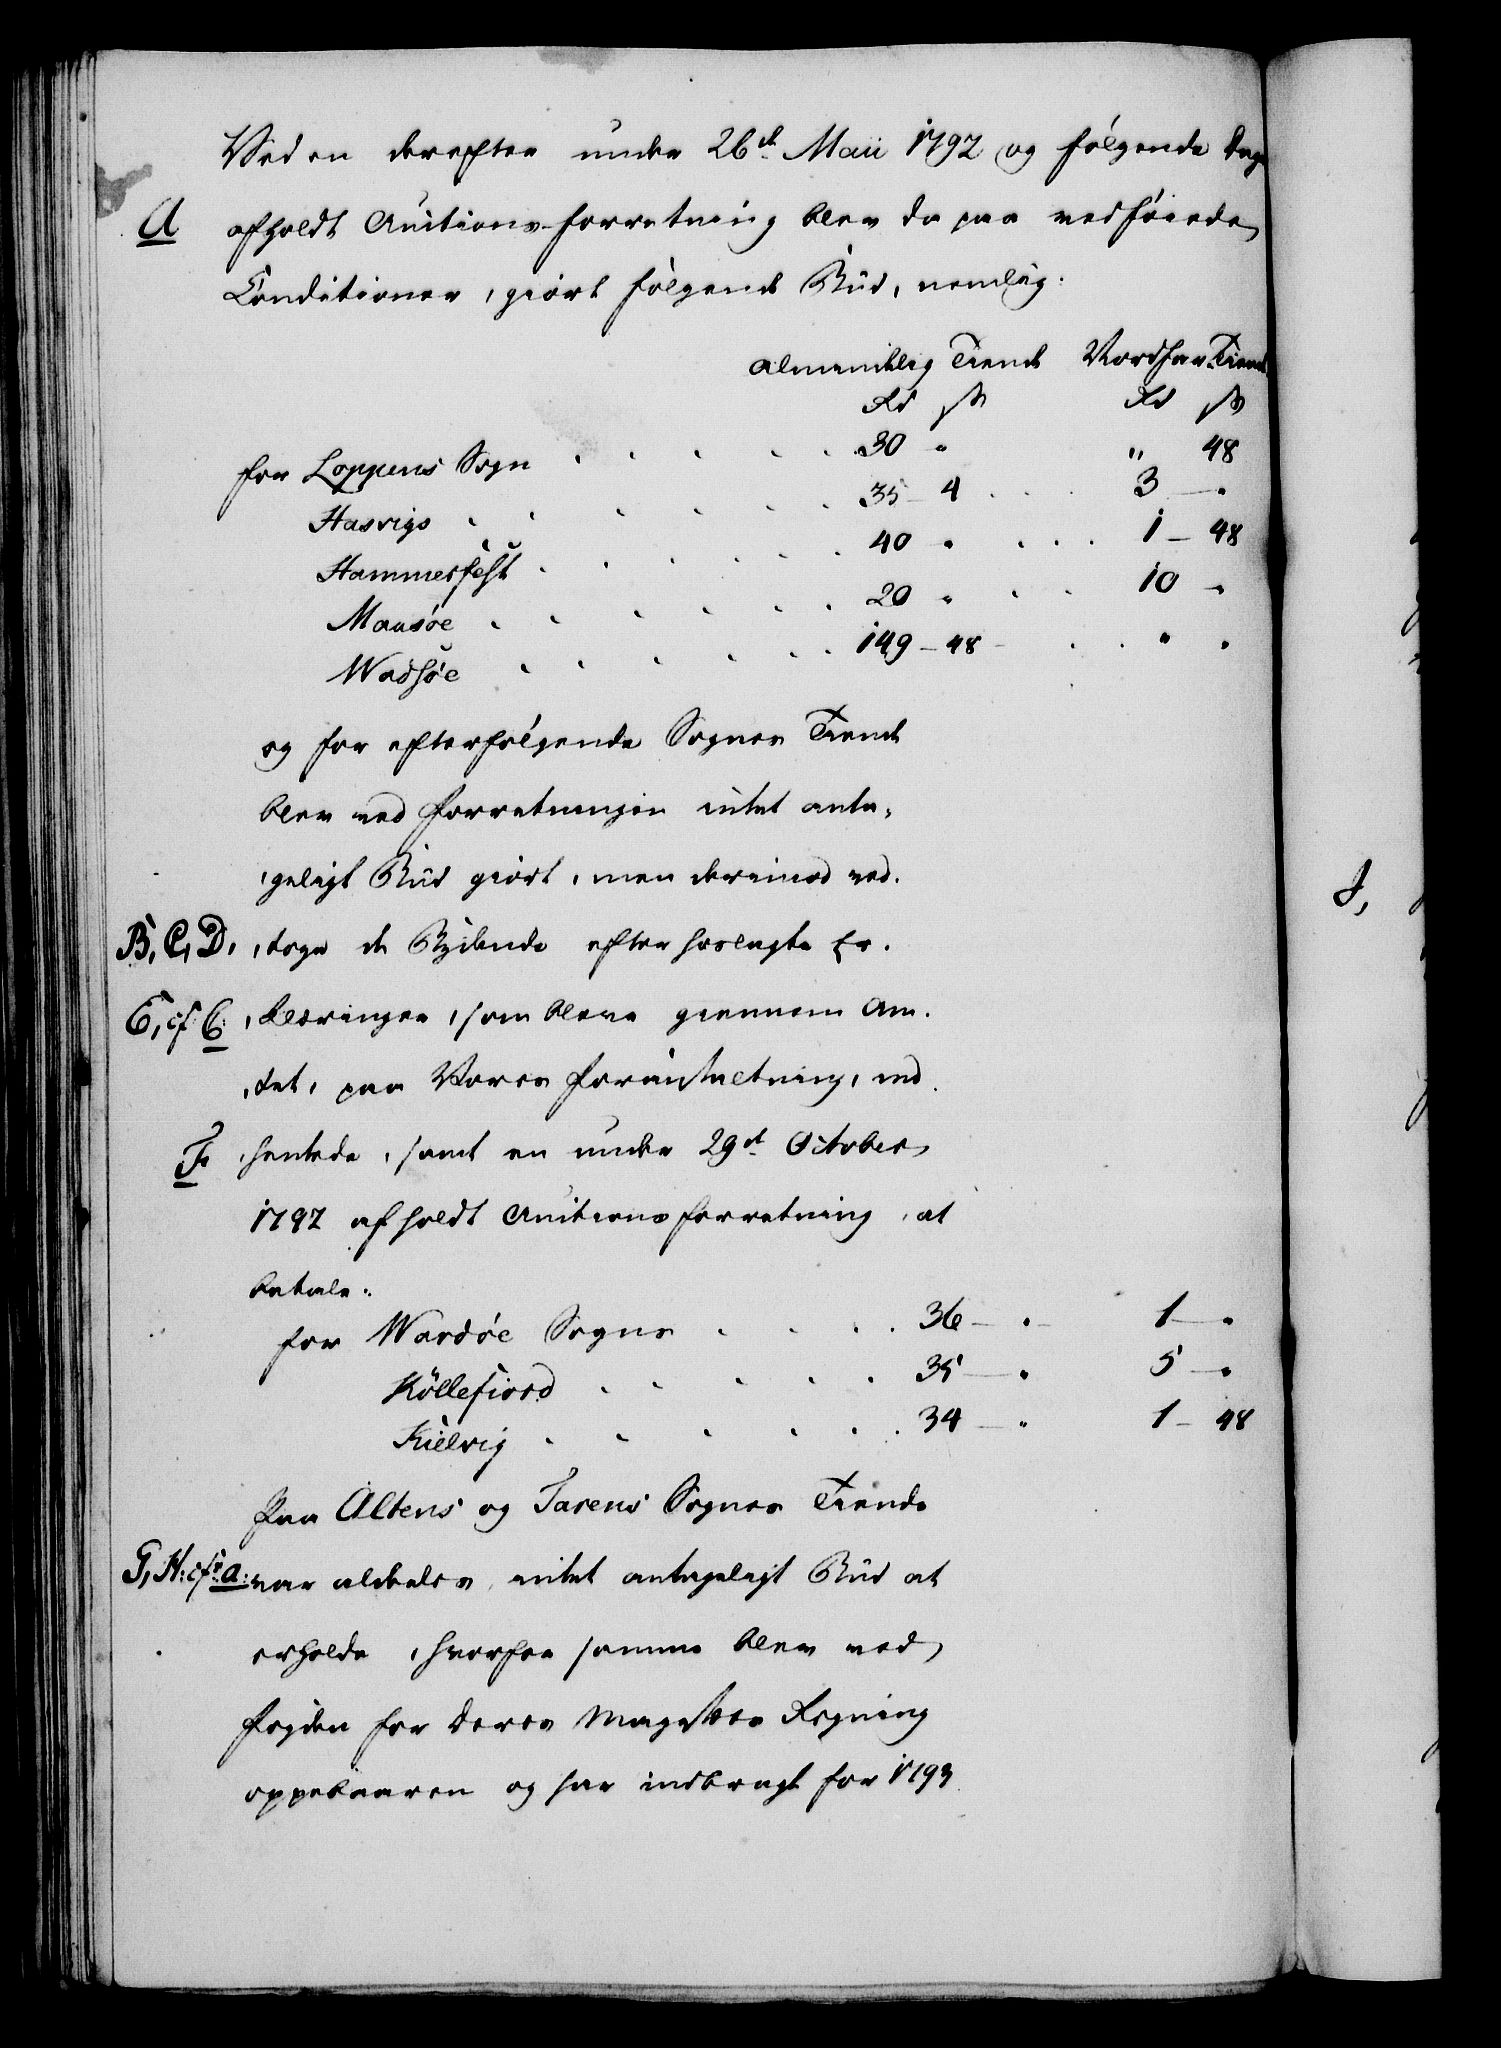 Ved en derefter under 26de Maii 1792 og følgende Dage
A afholdt Auctions-Forretning blev da paa vedføiede
Conditioner, giort følgende Bud, nemlig:
almindelig Tiende Vordhar Tiende
Rd s Rd s
for Loppens Sogn . . . . . 30 " " 48
Hasvigs . . . . . . 35 - 4 . . . 3 - "
Hammerfest . . . . . . 40 " . . . 1 - 48
Maasøe . . . . . . 20 " . . 10 "
Wadsøe . . . . . . 149 - 48 - . . " "
og for efterfølgende Sognes Tiende
blev ved Forretningen intet anta-
geligt Bud giort, men derimod ved-
B, C, D, toge de Bydende efter hoslagte Er-
E, cf C: klæringer, som bleve giennem Am-
tet, paa Vores Foranstaltning, ind-
F hentede, samt en under 29de October
1792 afholdt Auctionsforretning, at
betale:
for Wardøe Sogn . . . . 36 - " - 1 - "
Köllefiord . . . . . 35 - " 5 - "
Kielvig . . . . . . 34 - " 1 - 48
Paa Altens og Talvigs Sognes Tiende
G, H: cfr a: var aldeles intet antageligt Bud at
erholde, hvorfor samme blev ved
Fogden for Deres Majestæts Regning
oppebaaren og har indbragt for 1793
I,